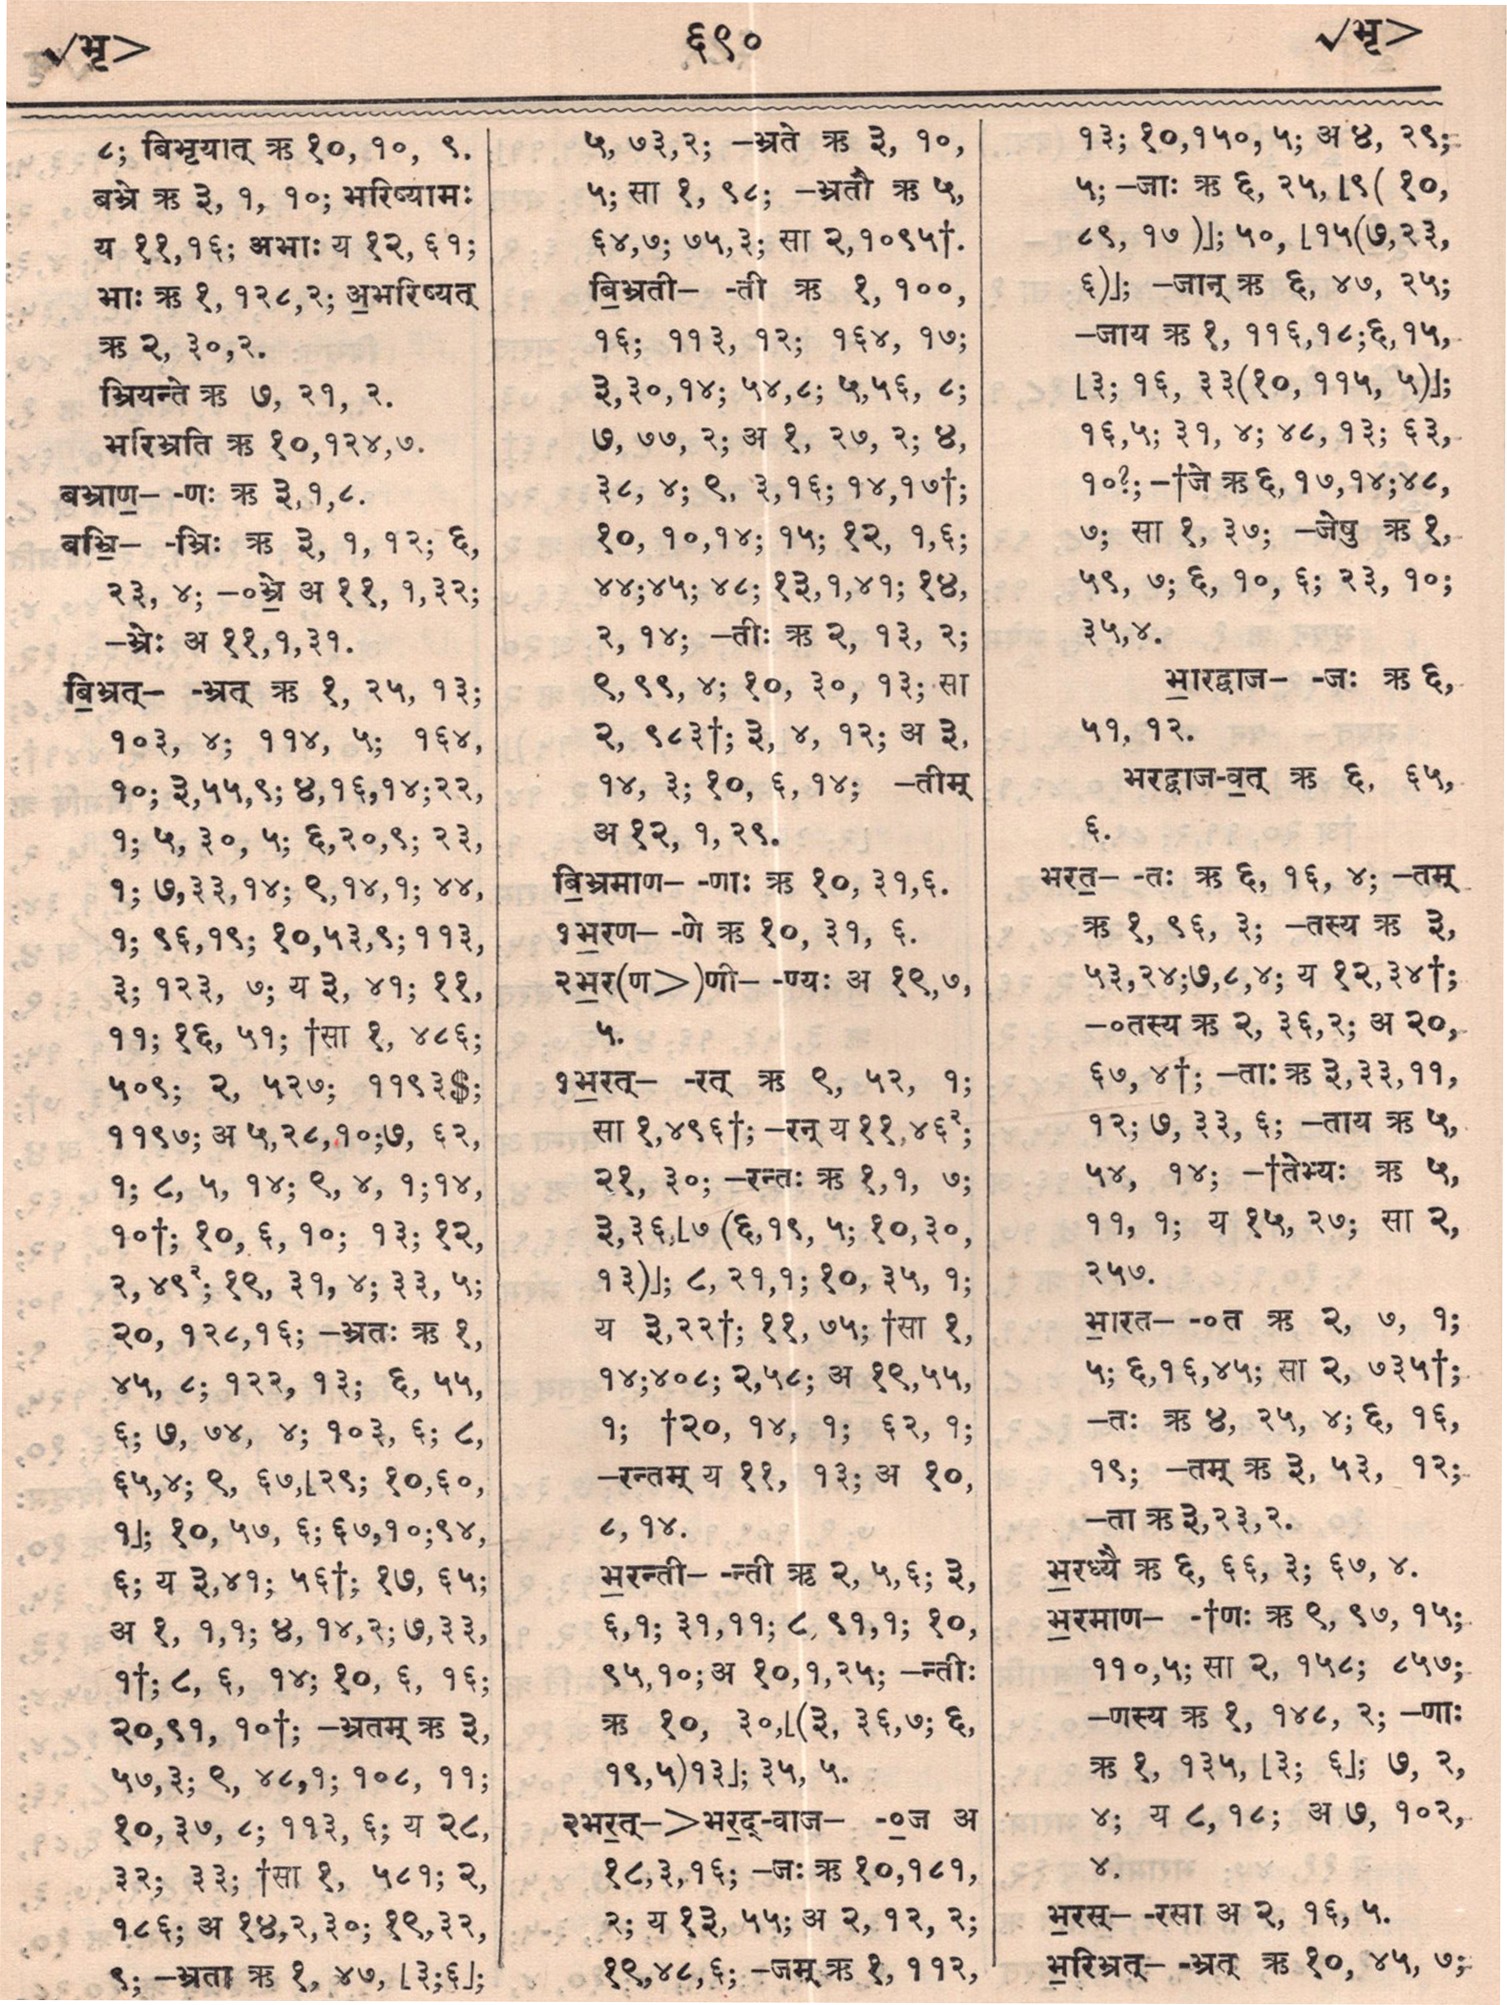 √भृ>
६९०
√भृ>
८; बिभृयात् ऋ १०, १०, ९.
बभ्रे ऋ ३, १, १०; भरिष्यामः
य ११,१६; अभाः य १२, ६१;
भाः ऋ १, १२८,२; अ॒भरिष्यत्
ऋ २, ३०,२.
भ्रियन्ते ऋ ७, २१, २.
भरिभ्रति ऋ १०,१२४,७.
बभ्राण॒– -णः ऋ ३,१,८.
बभ्रि॒– -भ्रिः ऋ ३, १, १२; ६,
२३, ४; –०भ्रे॒ अ ११, १,३२;
–भ्रेः अ ११,१,३१.
बि॒भ्रत्– -भ्रत् ऋ १, २५, १३;
१०३, ४; ११४, ५; १६४,
१०; ३,५५,९; ४,१६,१४;२२,
१; ५, ३०, ५; ६,२०,९; २३,
१; ७,३३,१४; ९,१४,१; ४४,
१; ९६,१९; १०,५३,९; ११३,
३; १२३, ७; य ३, ४१; ११,
११; १६, ५१; †सा १, ४८६;
५०९; २, ५२७; ११९३$;
११९७; अ ५,२८,१०;७, ६२,
१; ८, ५, १४; ९, ४, १;१४,
१०†; १०, ६, १०; १३; १२,
२, ४९²; १९, ३१, ४; ३३, ५;
२०, १२८,१६; –भ्रतः ऋ १,
४५, ८; १२२, १३; ६, ५५,
६; ७, ७४, ४; १०३, ६; ८,
६५,४; ९, ६७,⌊२९; १०,६०,
१⌋; १०, ५७, ६; ६७,१०;९४,
६; य ३,४१; ५६†; १७, ६५;
अ १, १,१; ४, १४,२; ७,३३,
१†; ८, ६, १४; १०, ६, १६;
२०,९१, १०†; –भ्रतम् ऋ ३,
५७,३; ९, ४८,१; १०८, ११;
१०, ३७, ८; ११३, ६; य २८,
३२; ३३; †सा १, ५८१; २,
१८६; अ १४,२,३०; १९,३२,
९; –भ्रता ऋ १, ४७, ⌊३;६⌋;
५, ७३,२; –भ्रते ऋ ३, १०,
५; सा १, ९८; –भ्रतौ ऋ ५,
६४,७; ७५,३; सा २,१०९५†.
बि॒भ्रती– -ती ऋ १, १००,
१६; ११३, १२; १६४, १७;
३,३०,१४; ५४,८; ५,५६, ८;
७, ७७, २; अ १, २७, २; ४,
३८, ४; ९, ३,१६; १४,१७†;
१०, १०,१४; १५; १२, १,६;
४४;४५; ४८; १३,१,४१; १४,
२, १४; –तीः ऋ २, १३, २;
९,९९, ४; १०, ३०, १३; सा
२, ९८३†; ३, ४, १२; अ ३,
१४, ३; १०, ६, १४; –तीम्
अ १२, १, २९.
बि॒भ्रमाण– -णाः ऋ १०, ३१,६.
१भ॒रण– -णे ऋ १०, ३१, ६.
२भ॒र(ण>)णी– -ण्यः अ १९,७,
५.
१भ॒रत्– -रत् ऋ ९, ५२, १;
सा १,४९६†; –रन् य ११,४६²;
२१, ३०; –रन्तः ऋ १,१, ७;
३,३६,⌊७ (६,१९, ५; १०,३०,
१३)⌋; ८, २१,१; १०, ३५, १;
य ३,२२†; ११, ७५; †सा १,
१४;४०८; २,५८; अ १९,५५,
१; †२०, १४, १; ६२, १;
–रन्तम् य ११, १३; अ १०,
८, १४.
भ॒रन्ती– -न्ती ऋ २, ५,६; ३,
६,१; ३१,११; ८, ९१,१; १०,
९५,१०; अ १०,१,२५; –न्तीः
ऋ १०, ३०,⌊(३, ३६,७; ६,
१९,५)१३⌋; ३५, ५.
२भर॒त्–>भर॒द्-वाज– -०॒ज अ
१८,३,१६; –जः ऋ १०,१८१,
२; य १३, ५५; अ २, १२, २;
१९,४८,६; –जम् ऋ १, ११२,
१३; १०,१५०, ५; अ ४, २९;
५; –जाः ऋ ६, २५, ⌊९( १०,
८९, १७ )⌋; ५०, ⌊१५(७,२३,
६)⌋; –जान् ऋ ६, ४७, २५;
–जाय ऋ १, ११६,१८;६,१५,
⌊३; १६, ३३(१०, ११५, ५)⌋;
१६,५; ३१, ४; ४८, १३; ६३,
१०?; –†जे ऋ ६, १७,१४;४८,
७; सा १, ३७; –जेषु ऋ १,
५९, ७; ६, १०, ६; २३, १०;
३५,४.
भा॒रद्वाज– -जः ऋ ६,
५१, १२.
भरद्वाज-व॒त् ऋ ६, ६५,
६.
भरत॒– -तः ऋ ६, १६, ४; –तम्
ऋ १, ९६, ३; –तस्य ऋ ३,
५३,२४;७,८,४; य १२,३४†;
–०तस्य ऋ २, ३६,२; अ २०,
६७, ४†; –ताः ऋ ३,३३,११,
१२; ७, ३३, ६; –ताय ऋ ५,
५४, १४; –†तेभ्यः ऋ ५,
११, १; य १५, २७; सा २,
२५७.
भा॒रत– -०त ऋ २, ७, १;
५; ६,१६,४५; सा २, ७३५†;
–तः ऋ ४, २५, ४; ६, १६,
१९; –तम् ऋ ३, ५३, १२;
–ता ऋ ३,२३,२.
भ॒रध्यै ऋ ६, ६६, ३; ६७, ४.
भ॒रमाण– -†णः ऋ ९, ९७, १५;
११०,५; सा २, १५८; ८५७;
–णस्य ऋ १, १४८, २; –णाः
ऋ १, १३५, ⌊३; ६⌋; ७, २,
४; य ८, १८; अ ७, १०२,
४.
भ॒रस्– -रसा अ २, १६, ५.
भ॒रिभ्रत्– -भ्रत् ऋ १०, ४५, ७;